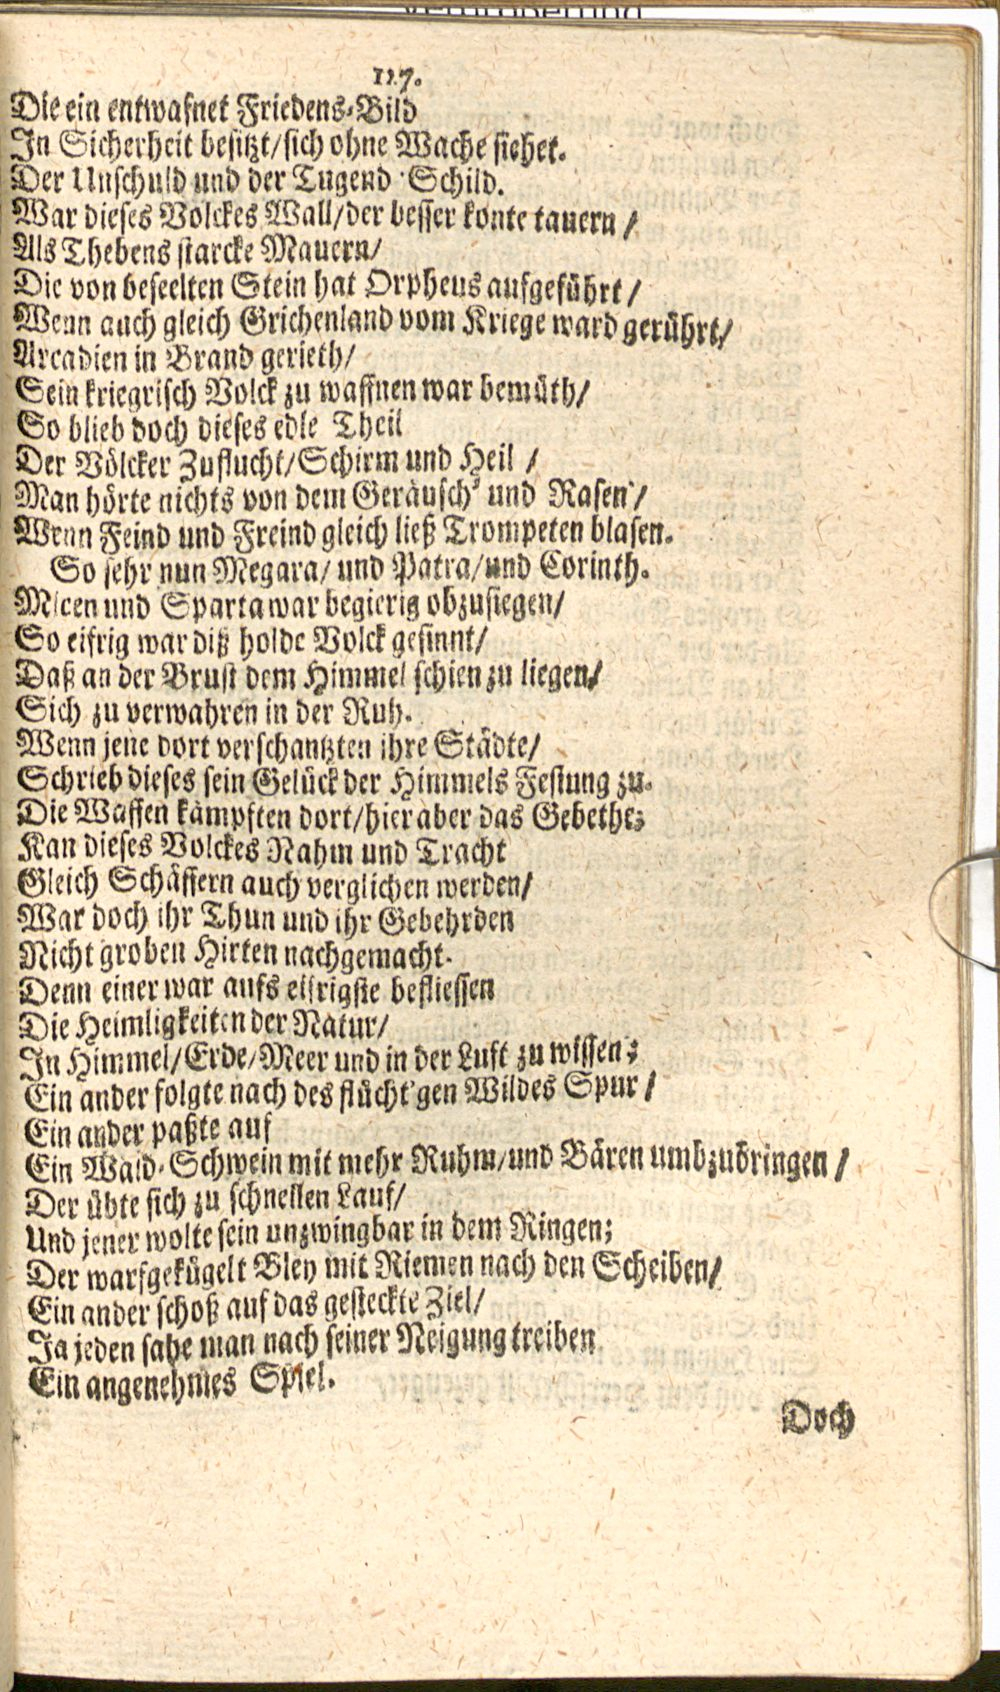 117.
Die ein entwafnet Friedens-Bild
In Sicherheit besitzt/sich ohne Wache siehet.
Der Unschuld und der Tugend Schild.
War dieses Volckes Wall/der besser konte tauern/
Als Thebens starcke Mauern/
Die von beseelten Stein hat Orpheus aufgeführt/
Wenn auch gleich Grichenland vom Kriege ward gerührt/
Arcadien in Brand gerieth/
Sein kriegrisch Volck zu waffnen war bemüth/
So blieb doch dieses edle Theil
Der Völcker Zuflucht/Schirm und Heil /
Man hörte nichts von dem Geräusch' und Rasen/
Wenn Feind und Freind gleich ließ Trompeten blasen.
So sehr nun Megara/ und Patra/und Corinth.
Micen und Sparta war begierig obzusiegen/
So eifrig war diß holde Volck gesinnt/
Daß an der Brust dem Himmel schien zu liegen/
Sich zu verwahren in der Ruh.
Wenn jene dort verschantzten ihre Städte/
Schrieb dieses sein Gelück der Himmels Festung zu.
Die Waffen kämpften dort/hier aber das Gebethe;
Kan dieses Volckes Nahm und Tracht
Gleich Schäffern auch verglichen werden/
War doch ihr Thun und ihr Gebehrden
Nicht groben Hirten nachgemacht.
Denn einer war aufs eifrigste befliessen
Die Heimligkeiten der Natur/
In Himmel/Erde/Meer und in der Luft zu wissen;
Ein ander folgte nach des flücht'gen Wildes Spur/
Ein ander paßte auf
Ein Wald-Schwein mit mehr Ruhm/und Bären umbzubringen/
Der übte sich zu schnellen Lauf/
Und jener wolte sein unzwingbar in dem Ringen;
Der warf gekügelt Bley mit Riemen nach den Scheiben/
Ein ander schoß auf das gesteckte Ziel/
Ja jeden sahe man nach seiner Neigung treiben
Ein angenehmes Spiel.
Doch